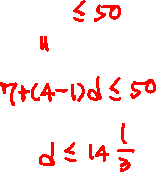 ≤ 50
u
7+(4-1)d ≤ 50
d ≤ 14 1/3